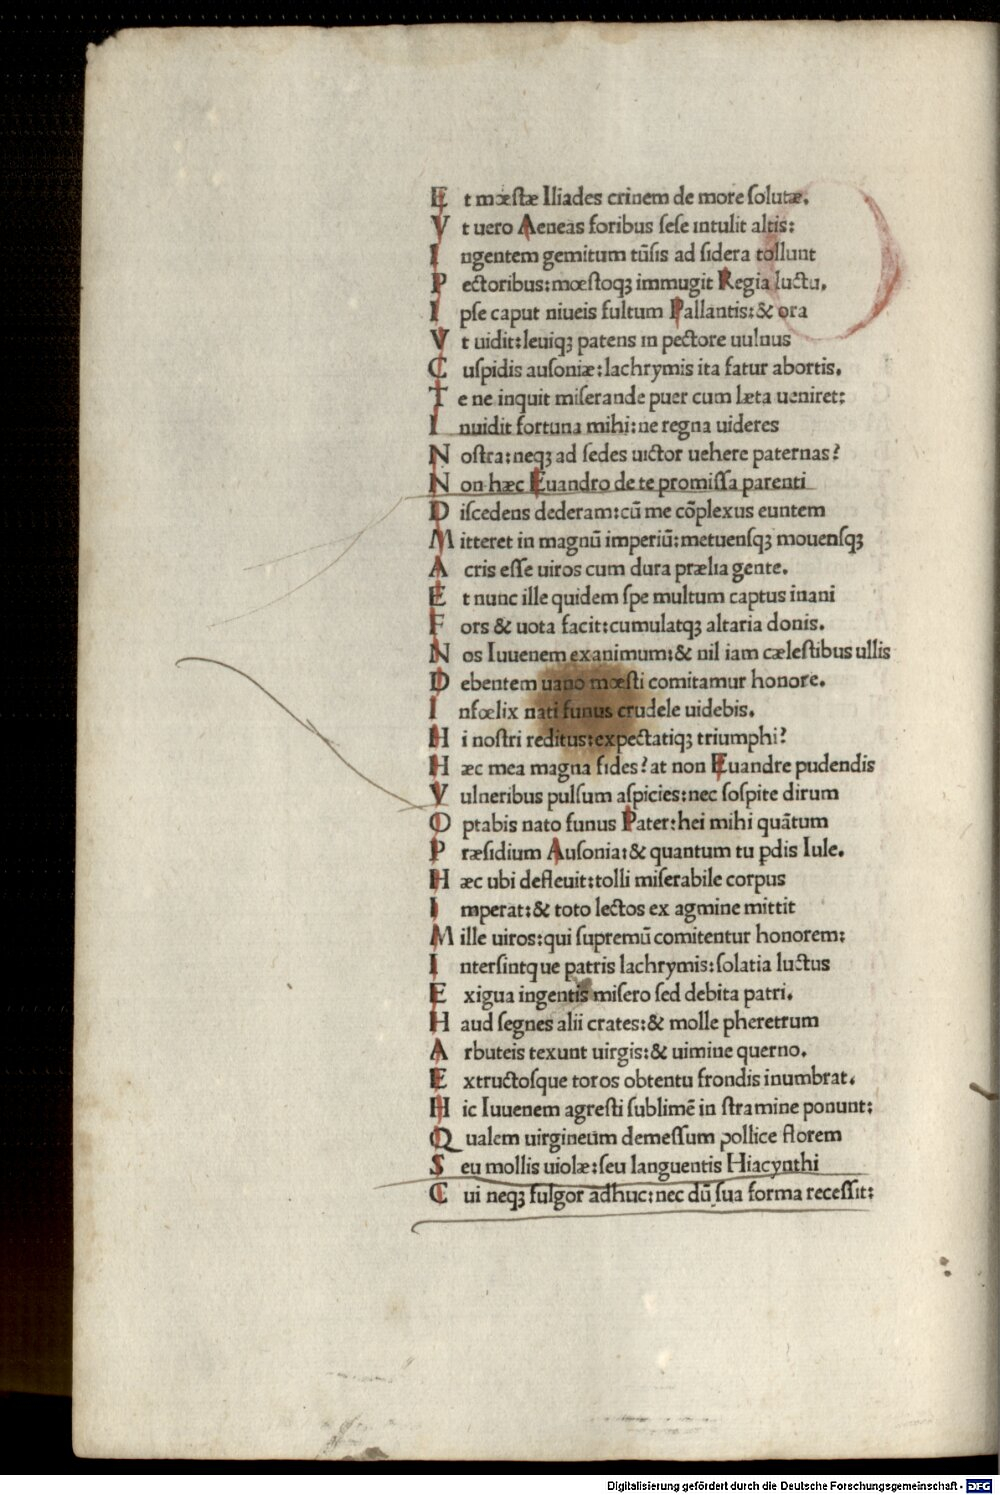 Et mœstæ Iliades crinem de more ſolutæ.
Vt uero Aeneas foribus ſeſe intulit altis:
Ingentem gemitum tūſis ad ſidera tollunt
Pectoribus: mœſtoqꝫ immugit Regia luctu.
Ipſe caput niueis fultum Pallantis: & ora
Vt uidit: leuiqꝫ patens in pectore uulnus
Cuſpidis auſoniæ: lachrymis ita fatur abortis.
Te ne inquit miſerande puer cum læta ueniret:
Inuidit fortuna mihi: ne regna uideres
Noſtra: neqꝫ ad ſedes uictor uehere paternas?
Non hæc Euandro de te promiſſa parenti
Diſcedens dederam: cū me cōplexus euntem
Mitteret in magnū imperiū: metuenſqꝫ mouenſqꝫ
Acris eſſe uiros cum dura prælia gente.
Et nunc ille quidem ſpe multum captus inani
Fors & uota facit: cumulatqꝫ altaria donis.
Nos Iuuenem exanimum: & nil iam cæleſtibus ullis
Debentem uano mœſti comitamur honore.
Infœlix nati funus crudele uidebis.
Hi noſtri reditus: expectatiqꝫ triumphi?
Hæc mea magna fides? at non Euandre pudendis
Vulneribus pulſum aſpicies: nec ſoſpite dirum
Optabis nato funus Pater: hei mihi quātum
Præſidium Auſonia: & quantum tu ꝑdis Iule.
Hæc ubi defleuit: tolli miſerabile corpus
Imperat: & toto lectos ex agmine mittit
Mille uiros: qui ſupremū comitentur honorem:
Interſintque patris lachrymis: ſolatia luctus
Exigua ingentis miſero ſed debita patri.
Haud ſegnes alii crates: & molle pheretrum
Arbuteis texunt uirgis: & uimine querno.
Extructoſque toros obtentu frondis inumbrat.
Hic Iuuenem agreſti ſublimē in ſtramine ponunt:
Qualem uirgineum demeſſum pollice florem
Seu mollis uiolæ: ſeu languentis Hiacynthi
Cui neqꝫ fulgor adhuc: nec dū ſua forma receſſit:
Digitalisierung gefördert durch die Deutsche Forschungsgemeinschaft - DFG